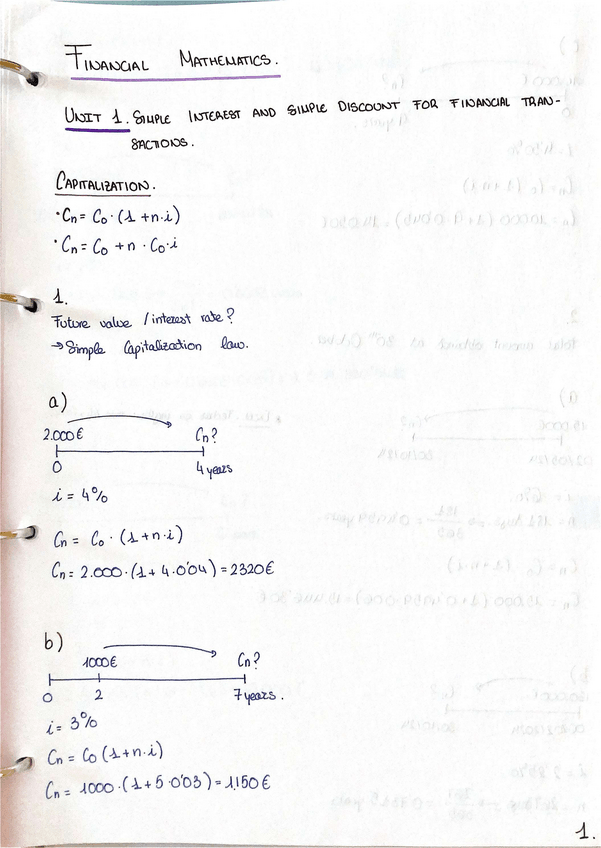 FINANCIAL MATHEMATICS.
UNIT 1. SIMPLE INTEREST AND SIMPLE DISCOUNT FOR FINANCIAL TRAN-
SACTIONS.
CAPITALIZATION.
• Cn = Co · (1 + n · i)
• Cn = Co + n · Co · i
1.
Future value / interest rate?
→ Simple Capitalization law.
a)
2.000 € Cn?
0 4 years
i = 4%
Cn = Co · (1 + n · i)
Cn = 2.000 · (1 + 4 · 0'04) = 2320 €
b)
1000 € Cn?
0 2 7 years.
i = 3%
Cn = Co (1 + n · i)
Cn = 1000 · (1 + 5 · 0'03) = 1,150 €
1.